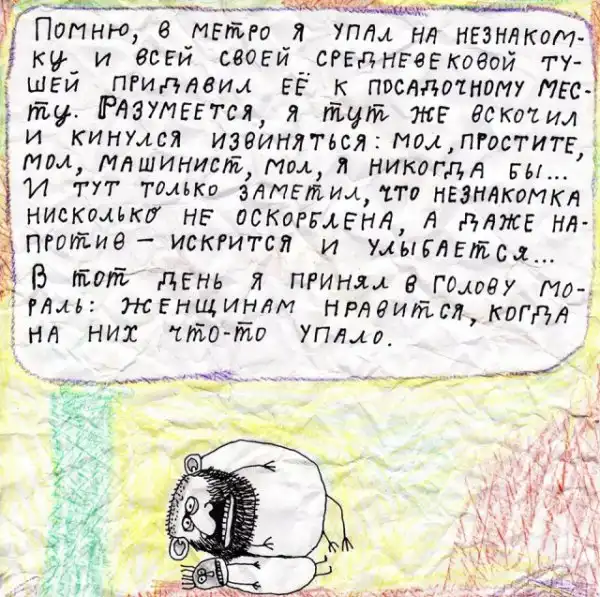 Помню, в метро я упал на незнаком-
ку и всей своей средневековой ту-
шей придавил её к посадочному мес-
ту. Разумеется, я тут же вскочил
и кинулся извиняться: мол, простите,
мол, машинист, мол, я никогда бы...
И тут только заметил, что незнакомка
нисколько не оскорблена, а даже на-
против — искрится и улыбается...
В тот день я принял в голову мо-
раль: женщинам нравится, когда
на них что-то упало.